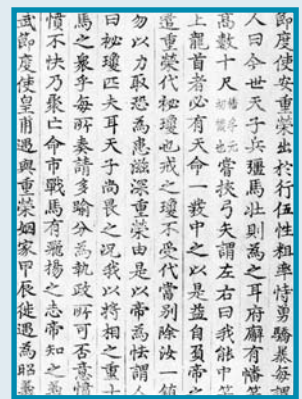 節度使安重榮出於行伍性粗率恃勇驕暴每謂
人曰今世天子兵彊馬壯則為之耳府廨有幡竿
高數十尺嘗挾弓矢謂左右曰我能中竿
上龍首者必有天命一發中之以是益自負帝之
遣重榮代祕瓊也戒之瓊不受代當別除汝一鎮
勿以力取恐為患滋深重榮由是以帝為怯謂人
曰祕瓊匹夫耳天子尚畏之況我以將相之重士
馬之衆乎每所奏請多踰分為執政所可否意憤
憤不快乃聚亡命市戰馬有飛揚之志帝知之義
武節度使皇甫遇與重榮姻家甲辰徙遇為昭義